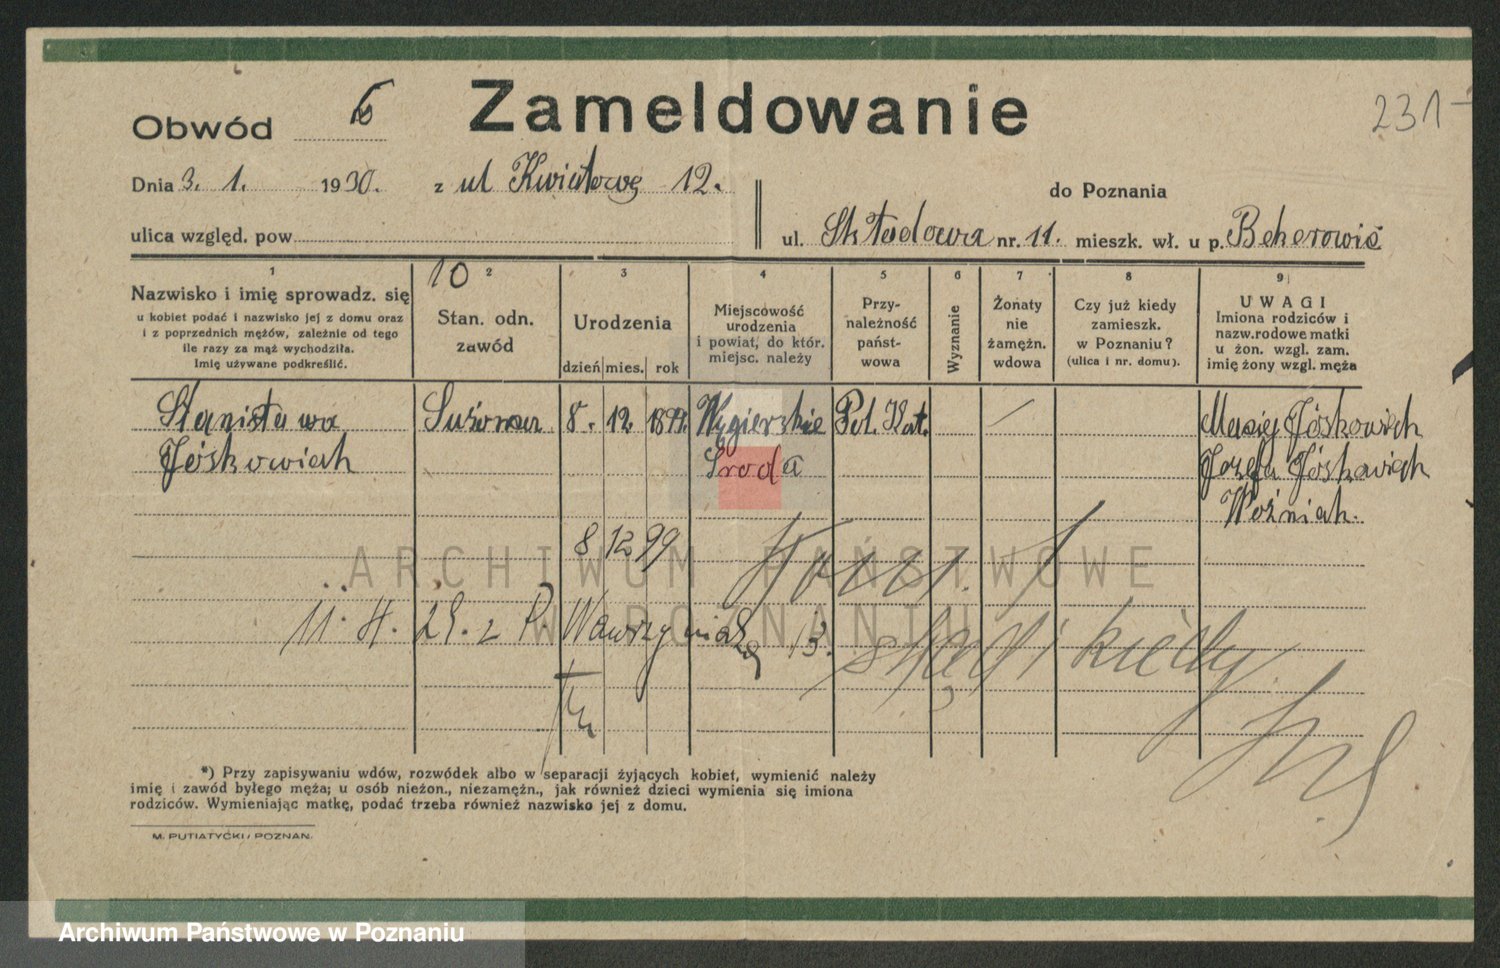 Zameldowanie
231
Obwód
Dnia 3. 1. 1930. z ul Kwiatowej 12.
do Poznania
ulica względ. pow
ul. Składowa nr. 11. mieszk. wł. u p.
1
Nazwisko i imię sprowadz. się
u kobiet podać i nazwisko jej z domu oraz
i z poprzednich mężów, zależnie od tego
ile razy za mąż wychodziła.
Imię używane podkreślić.
10
2
Stan. odn.
zawód
3
Urodzenia
dzień mies. rok
4
Miejscowość
urodzenia
i powiat, do któr.
miejsc. należy
5
Przy-
należność
państ-
wowa
6
Wyznanie
7
Żonaty
nie
żamężn.
wdowa
8
Czy już kiedy
zamieszk.
w Poznaniu?
(ulica i nr. domu).
9
UWAGI
Imiona rodziców i
nazw.rodowe matki
u żon. wzgl. zam.
imię żony wzgl. męża
Stanisława 8. 12. 1899. Węgierskie Pol. Kat. Maciej Jóskowiak
Jóskowiak Środa Józefa Jóskowiak
Woźniak.
8 12 99
11. 4. 29. z P. Wawrzyniaka 13.
skąd i kiedy
*) Przy zapisywaniu wdów, rozwódek albo w separacji żyjących kobiet, wymienić należy
imię i zawód byłego męża; u osób nieżon., niezamężn., jak również dzieci wymienia się imiona
rodziców. Wymieniając matkę, podać trzeba również nazwisko jej z domu.
M. PUTIATYCKI, POZNAN.
ARCHIWUM PAŃSTWOWE
W POZNANIU
Archiwum Państwowe w Poznaniu